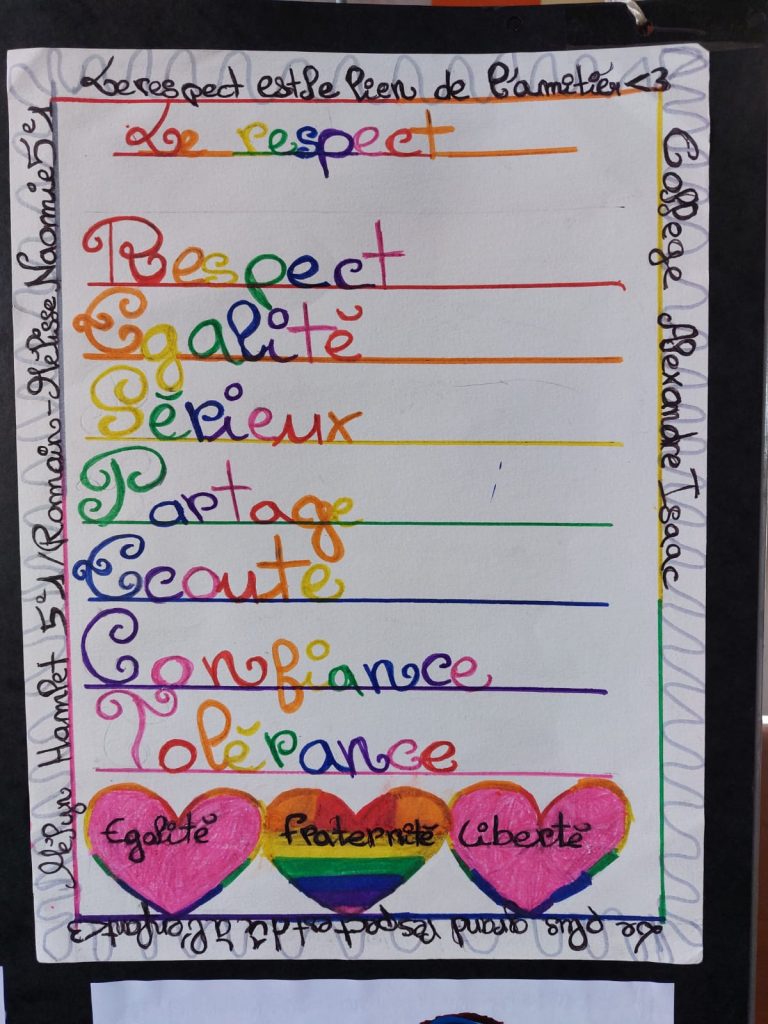 Le respect est le lien de l'amitiér <3
Le respect
Respect
Egalité
Sérieux
Partage
Ecoute
Confiance
Tolérance
Egalité
fraternité
Liberté
Le plus grand respect est dû à l'enfant <3
Mélyn Hamlet 5e1/Romain-Mélisse Naomie 5e1
College Alexandre Isaac